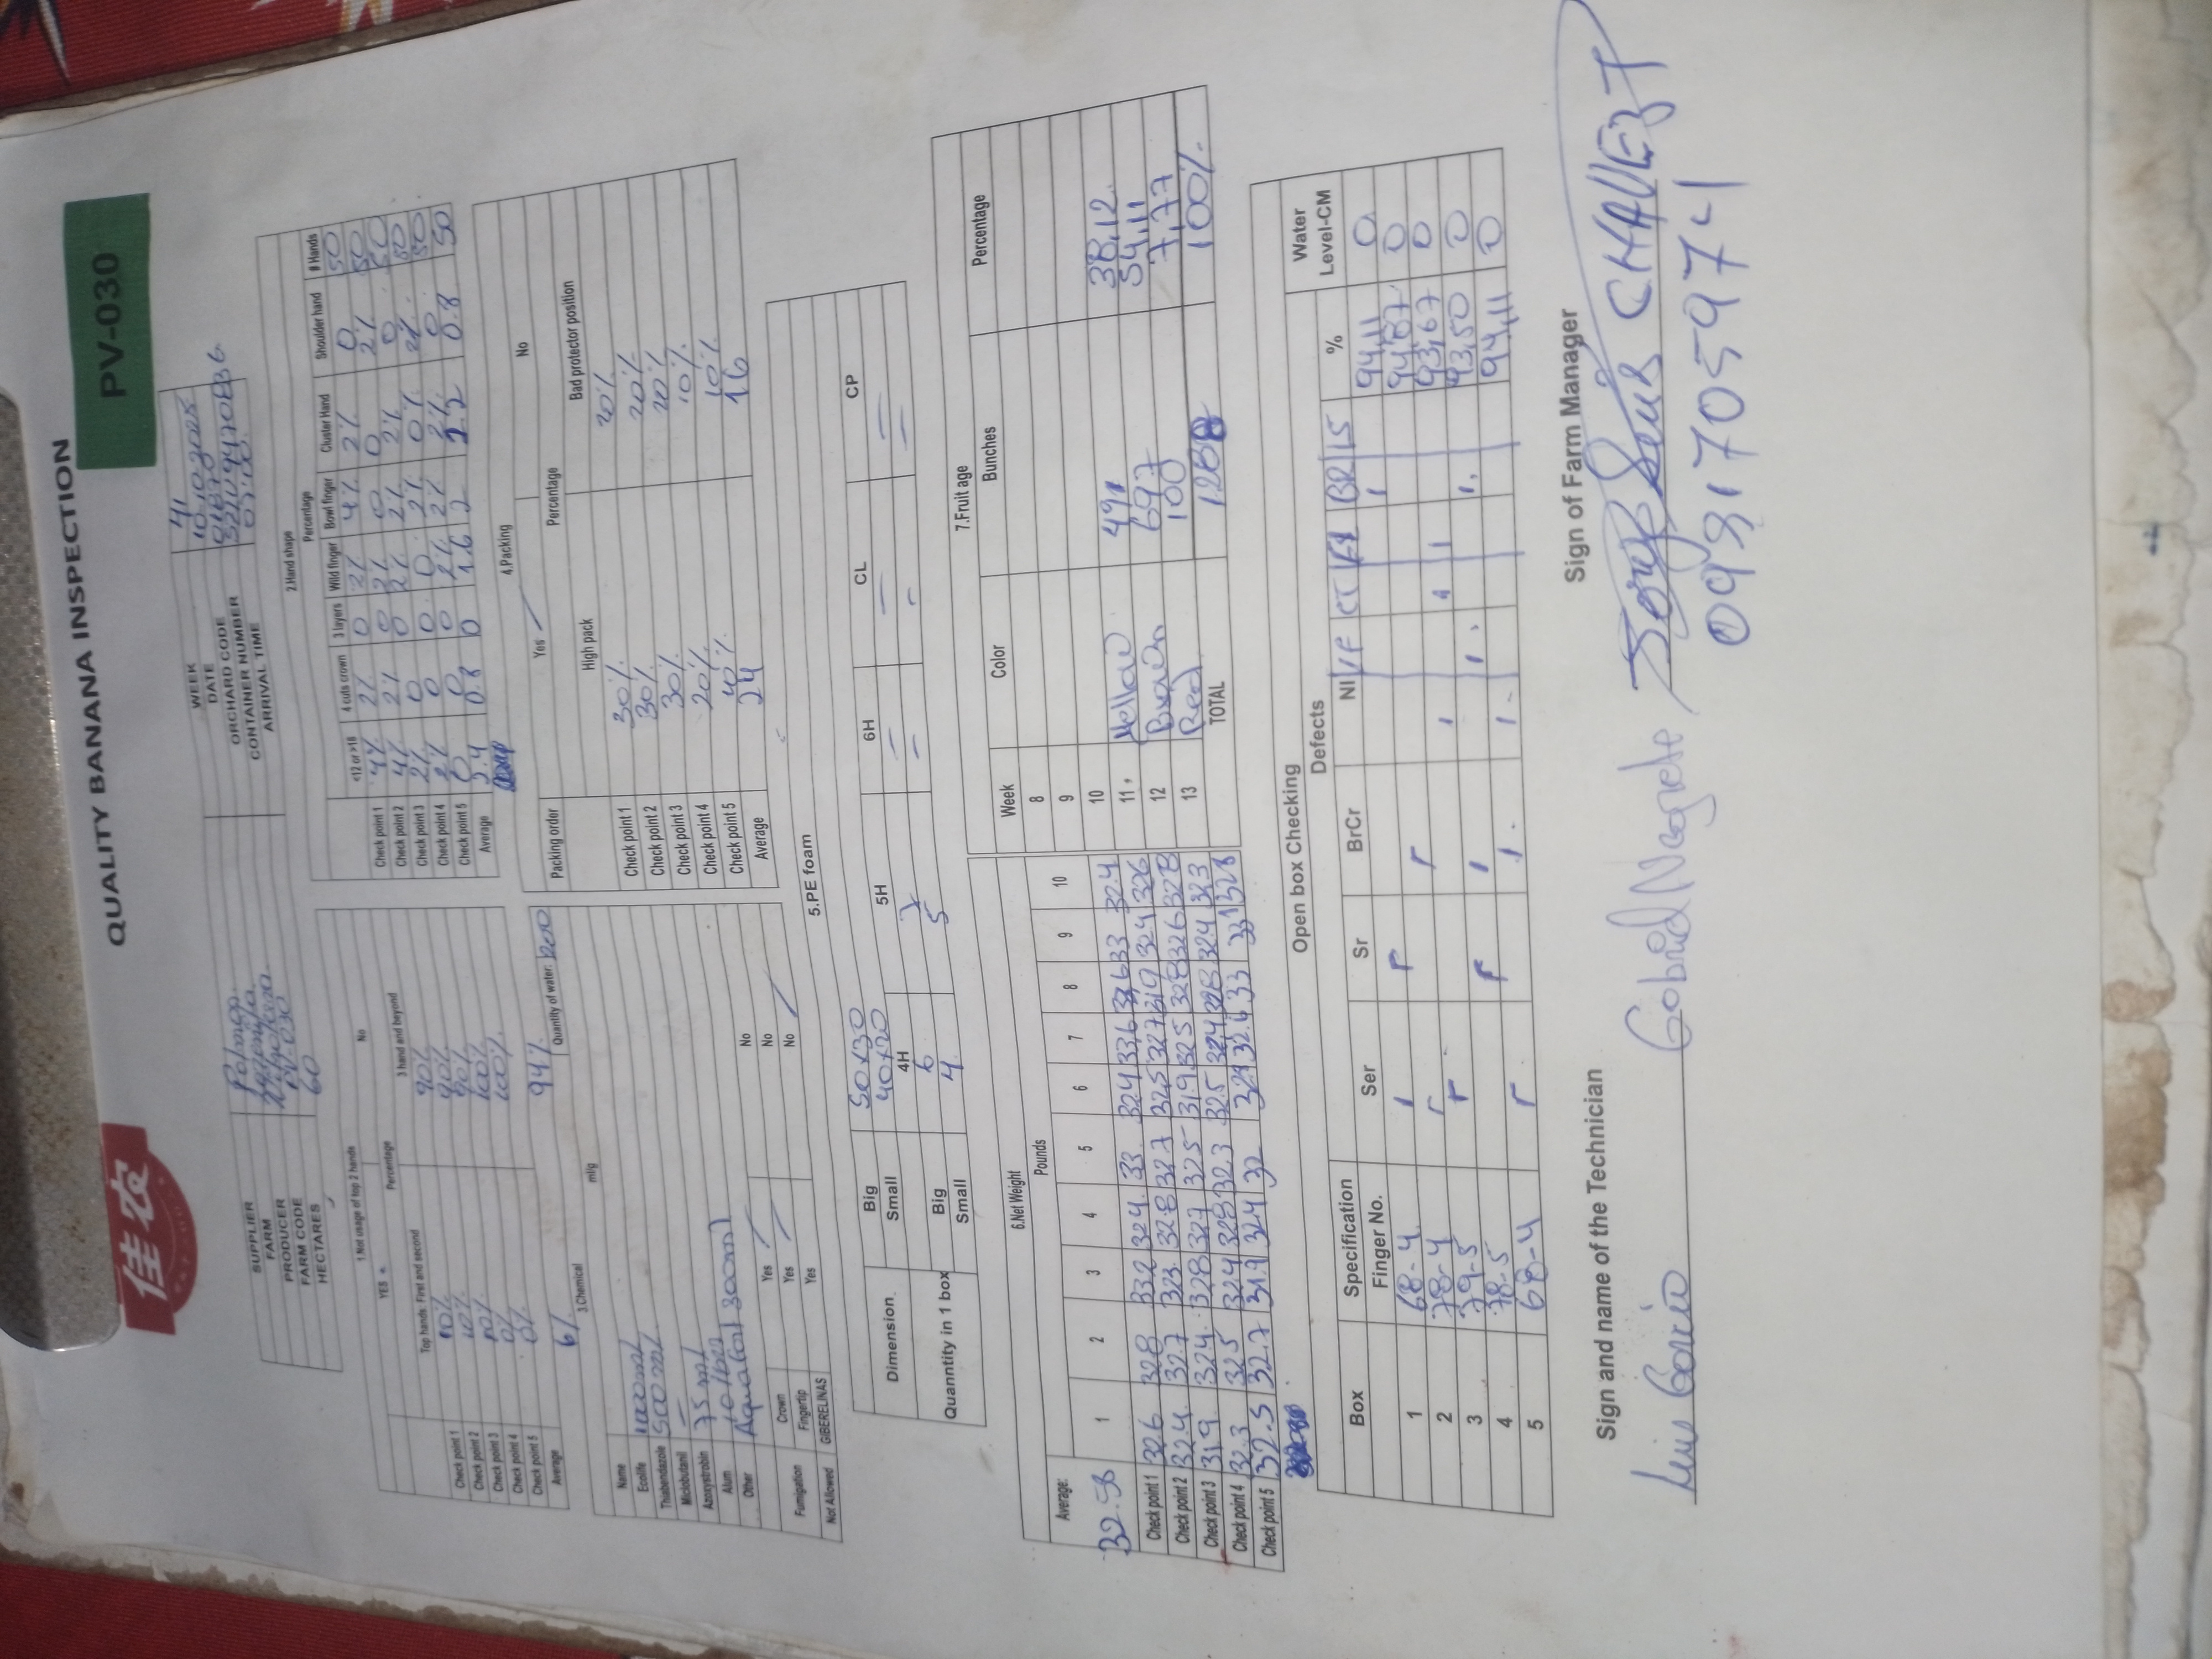 佳农
QUALITY BANANA INSPECTION
PV-030
SUPPLIER
FARM
PRODUCER
FARM CODE PV-030
HECTARES 60
WEEK 41
DATE 10-10-2025
ORCHARD CODE
CONTAINER NUMBER
ARRIVAL TIME 07:00
1.Not usage of top 2 hands
YES No
Percentage
Top hands: First and second 3 hand and beyond
Check point 1 10% 90%
Check point 2 10% 90%
Check point 3 10% 90%
Check point 4 0% 100%
Check point 5 0% 100%
Average 6% 94%
2.Hand shape
Percentage
<12 or >18 4 cuts crown 3 layers Wild finger Bowl finger Cluster Hand Shoulder hand # Hands
Check point 1 4% 2% 0 2% 4% 2% 0 50
Check point 2 4% 2% 0 2% 0 0 2% 50
Check point 3 2% 0 0 2% 2% 2% 0 50
Check point 4 2% 0 0 0 2% 0% 2% 50
Check point 5 0 0 0 2% 2% 2% 0 50
Average 0.8 0 1.6 2 0.8 50
3.Chemical
Quantity of water: 200
ml/g
Name
Ecolife 1000ml
Thiabendazole 500ml
Miclobutanil —
Azoxystrobin 75 ml
Alum
Other 300ml
Fumigation Crown Yes No
Fingertip Yes No
Not Allowed GIBERELINAS Yes No
4.Packing
Packing order Yes No
Percentage
High pack Bad protector position
Check point 1 30% 20%
Check point 2 30% 20%
Check point 3 30% 20%
Check point 4 20% 10%
Check point 5 10% 10%
Average 24 16
5.PE foam
Dimension Big 50x30
Small 40x20
4H 5H 6H CL CP
Quanntity in 1 box Big 6 7 — — —
Small 4 5 — — —
6.Net Weight
Average: 32.58
Pounds
1 2 3 4 5 6 7 8 9 10
Check point 1 32.6 328 332 324 33 324 33,6 33,6 33 32.4
Check point 2 32.4 32.7 323 32.8 32.7 325 327 319 324 326
Check point 3 31.9 324 328 327 325 319 325 328 326 328
Check point 4 32.3 325 324 328 32.3 32.5 324 328 324 323
Check point 5 32.5 32.7 31.9 324 32 33 331 328
7.Fruit age
Week Color Bunches Percentage
8
9
10
11 Yellow 491 38,12
12 Brown 697 54,11
13 Red 100 7,77
TOTAL 1288 100%
Open box Checking
Box Specification Defects % Water Level-CM
Finger No. Ser Sr BrCr NI CT BR LS
1 68-4 94,11 0
2 78-4 94,87 0
3 79-5 93,67 0
4 78-5 93,50 0
5 68-4 94,11 0
Sign and name of the Technician
Sign of Farm Manager
Luis Garcia Gabriel Negrete CHAVEZ T
0981705974